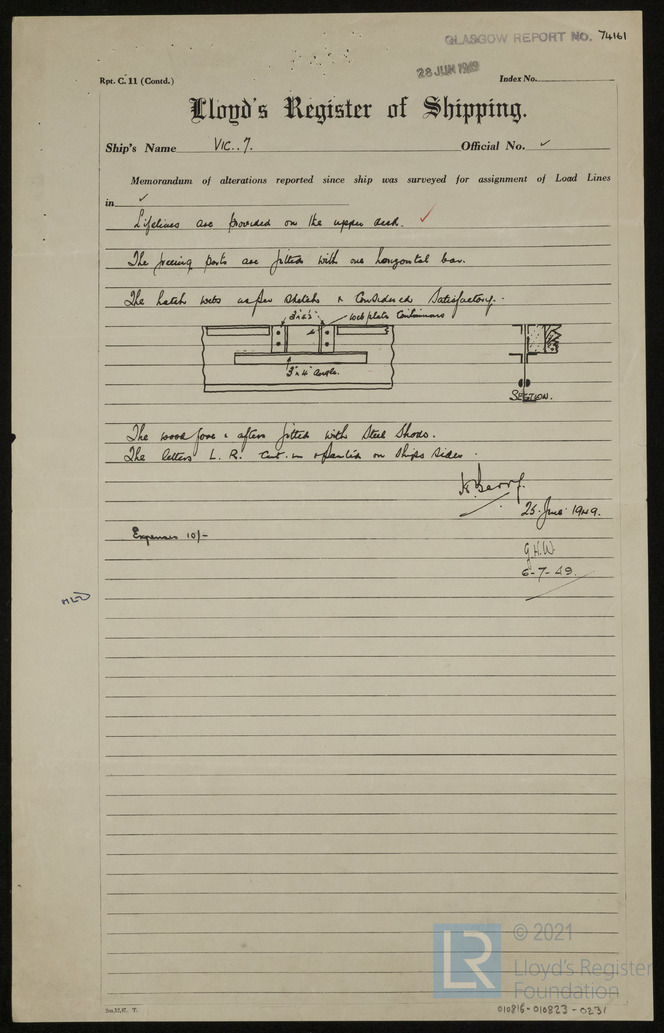 GLASGOW REPORT NO. 74161
28 JUN 1949
Rpt. C. 11 (Contd.)
Index No.
Lloyd's Register of Shipping.
Ship's Name VIC. 7.
Official No. ✓
Memorandum of alterations reported since ship was surveyed for assignment of Load Lines
in ✓
Lifelines are provided on the upper deck. ✓
The freeing ports are fitted with one horizontal bar.
The hatch webs as per sketch & Considered Satisfactory.
web plate Continuous
3" x 4" angle.
SECTION.
The wood fore & afters fitted with Steel Shoes.
The letters L. R. cut in & painted on Ships sides.
K. Berry.
25 June 1949.
Expenses 10/-
G.H.W.
6-7-49.
© 2021
LR
Lloyd's Register
Foundation
010815-010823-0231